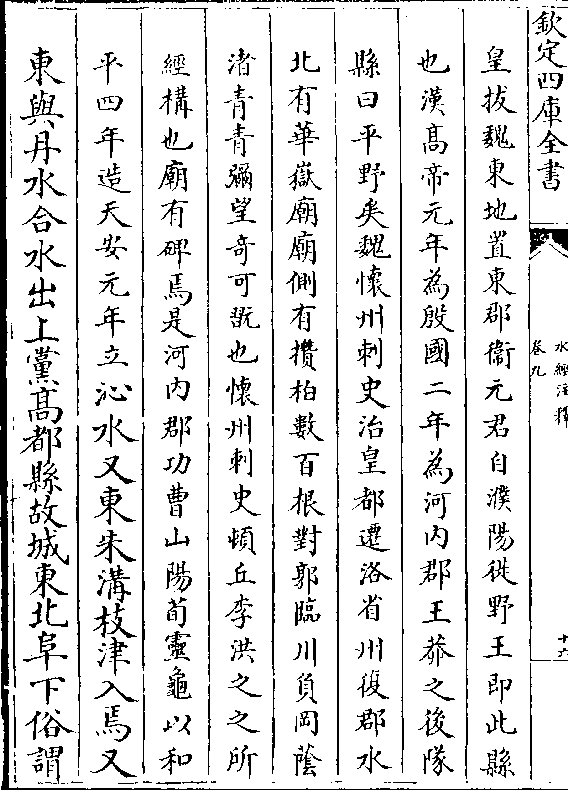 欽定四庫全書
水經注釋
卷九
十六
皇拔魏東地置東郡衞元君自濮陽徙野王即此縣
也漢髙帝元年為殷國二年為河内郡王莽之後隊
縣曰平野矣魏懷州刺史治皇都遷洛省州復郡水
北有華嶽廟廟側有攢柏數百根對郭臨川負岡蔭
渚青青彌望奇可翫也懷州刺史頓丘李洪之之所
經構也廟有碑焉是河内郡功曹山陽荀靈龜以和
平四年造天安元年立沁水又東朱溝枝津入焉又
東與丹水合水出上黨髙都縣故城東北阜下俗謂